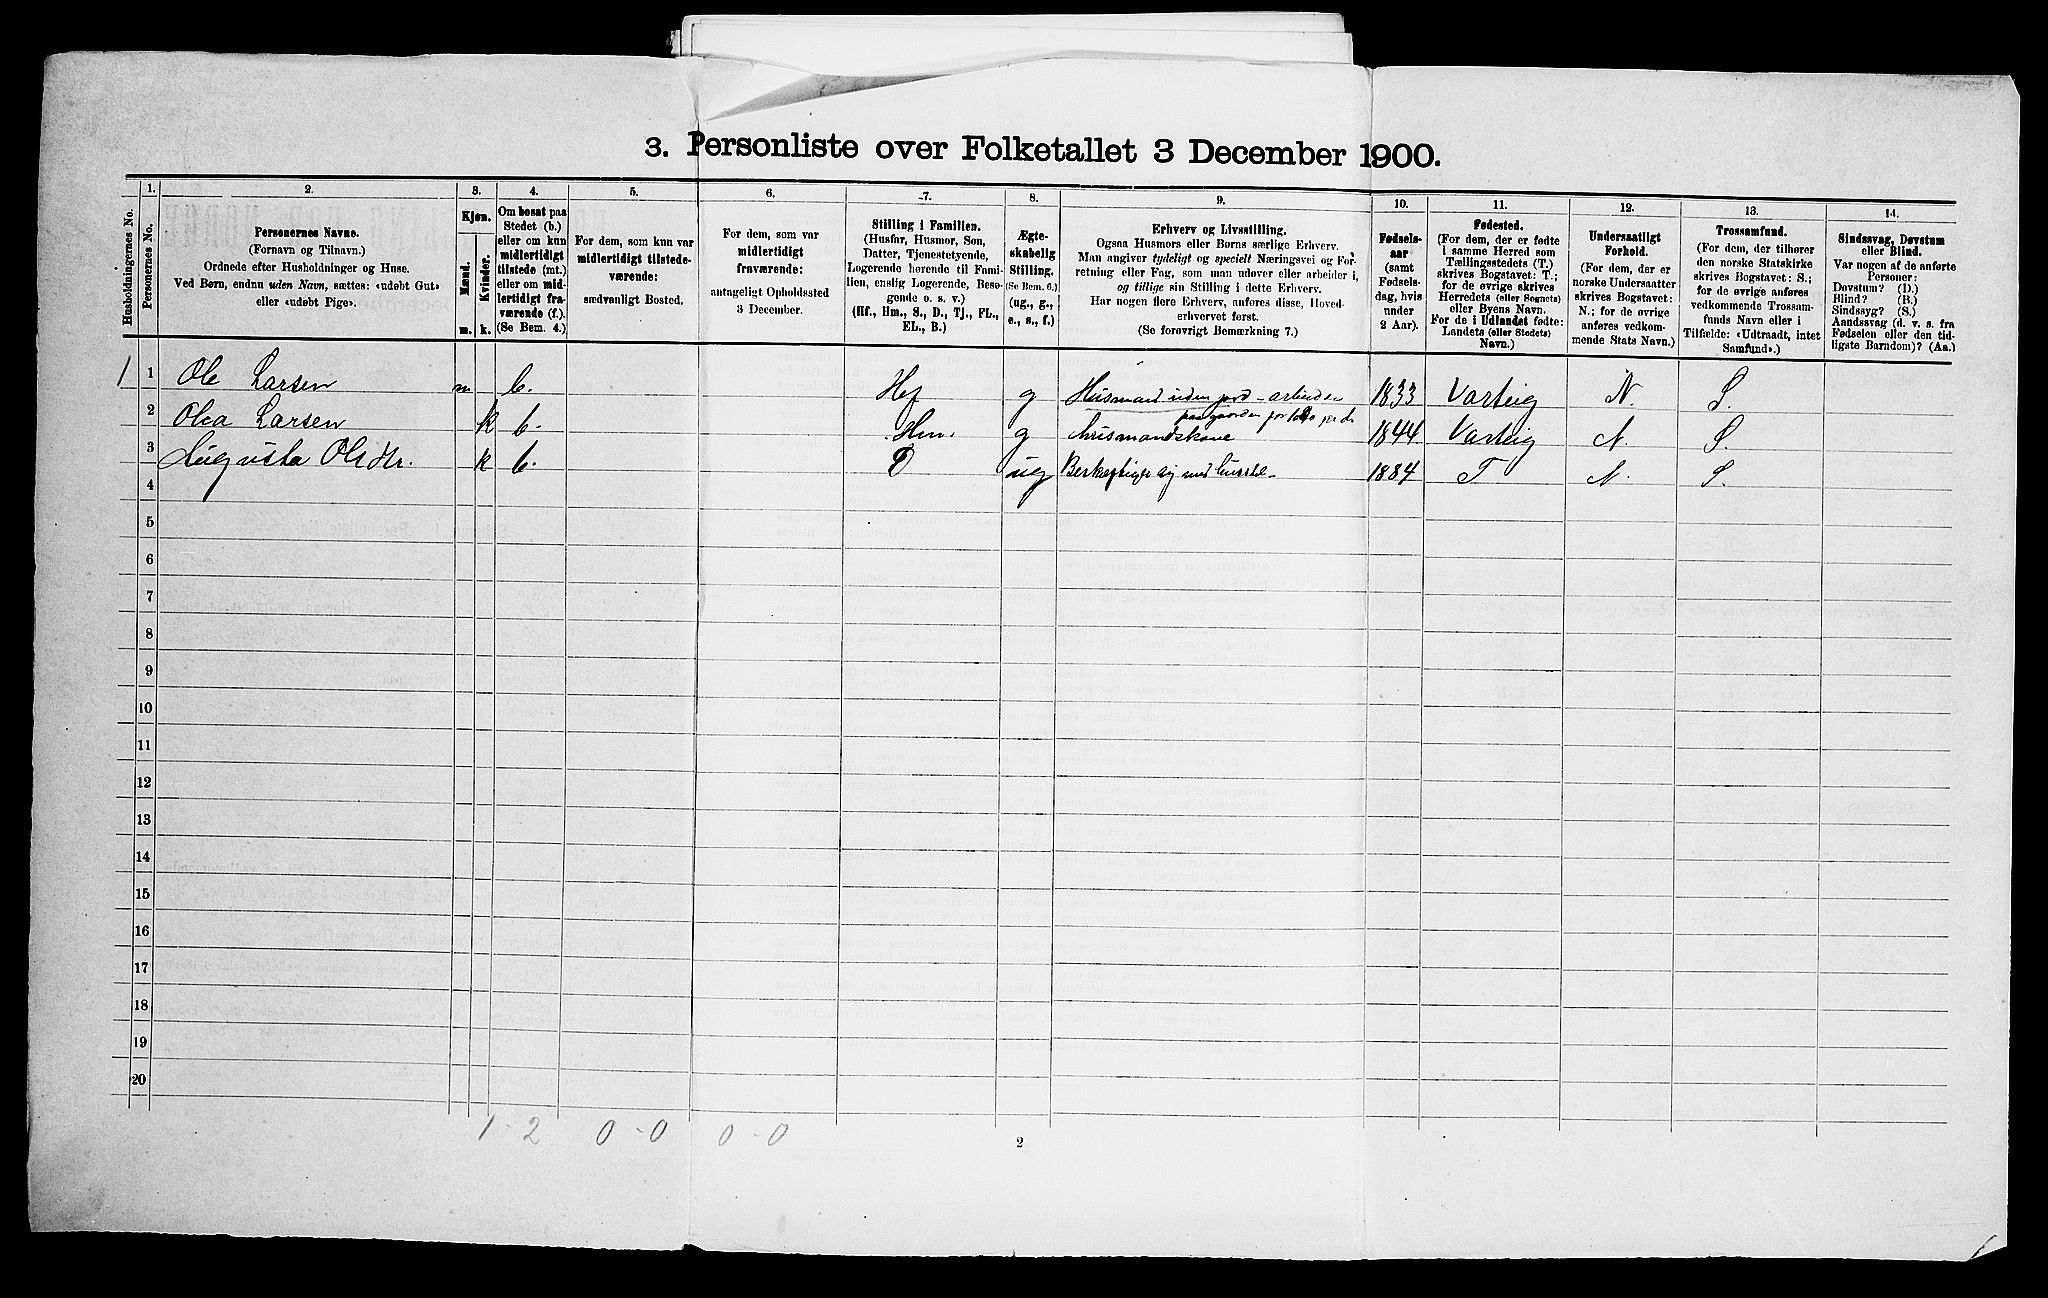 3. Personliste over Folketallet 3 December 1900.
Husholdningernes No.
1.
Personernes No.
2.
Personernes Navne.
(Fornavn og Tilnavn.)
Ordnede efter Husholdninger og Huse.
Ved Børn, endnu uden Navn, sættes: «udøbt Gut»
eller «udøbt Pige».
3.
Kjøn.
Mænd.
Kvinder.
m. k.
4.
Om bosat paa
Stedet (b.)
eller om kun
midlertidigt
tilstede (mt.)
eller om mid-
lertidigt fra-
værende (f.).
(Se Bem. 4.)
5.
For dem, som kun var
midlertidigt tilstede-
værende:
sædvanligt Bosted.
6.
For dem, som var
midlertidigt
fraværende:
antageligt Opholdssted
3 December.
7.
Stilling i Familien.
(Husfar, Husmor, Søn,
Datter, Tjenestetyende,
Logerende hørende til Fami-
lien, enslig Logerende, Besø-
gende o. s. v.)
(Hf., Hm., S., D., Tj., FL.,
EL., B.)
8.
Ægte-
skabelig
Stilling.
(Se Bem. 6.)
(ug., g.,
e., s., f.)
9.
Erhverv og Livsstilling.
Ogsaa Husmors eller Børns særlige Erhverv.
Man angiver tydeligt og specielt Næringsvei og For-
retning eller Fag, som man udøver eller arbeider i,
og tillige sin Stilling i dette Erhverv.
Har nogen flere Erhverv, anføres disse, Hoved-
erhvervet først.
(Se forøvrigt Bemærkning 7.)
10.
Fødsels-
aar
(samt
Fødsels-
dag, hvis
under
2 Aar).
11.
Fødested.
(For dem, der er fødte
i samme Herred som
Tællingsstedets (T.)
skrives Bogstavet: T.;
for de øvrige skrives
Herredets (eller Sognets)
eller Byens Navn.
For de i Udlandet fødte:
Landets (eller Stedets)
Navn.)
12.
Undersaatligt
Forhold.
(For dem, der er
norske Undersaatter
skrives Bogstavet:
N.; for de øvrige
anføres vedkom-
mende Stats Navn.)
13.
Trossamfund.
(For dem, der tilhører
den norske Statskirke
skrives Bogstavet: S.;
for de øvrige anføres
vedkommende Trossam-
funds Navn eller i
Tilfælde: «Udtraadt, intet
Samfund».)
14.
Sindssvag, Døvstum
eller Blind.
Var nogen af de anførte
Personer:
Døvstum? (D.)
Blind? (B.)
Sindssyg? (S.)
Aandssvag (d. v. s. fra
Fødselen eller den tid-
ligste Barndom)? (Aa.)
1 1 Ole Larsen m b. Hf g Husmand uden jord - arbeider 1833 Varteig N. S.
paa gaarden for
2 Olea Larsen k b. Hm. g husmandskone 1844 Varteig N. S.
3 Augusta Olsdtr. k b. D ug Beskjæftiger sig med husstel 1884 T N. S.
4
5
6
7
8
9
10
11
12
13
14
15
16
17
18
19
20
1 - 2 0 - 0 0 - 0
2